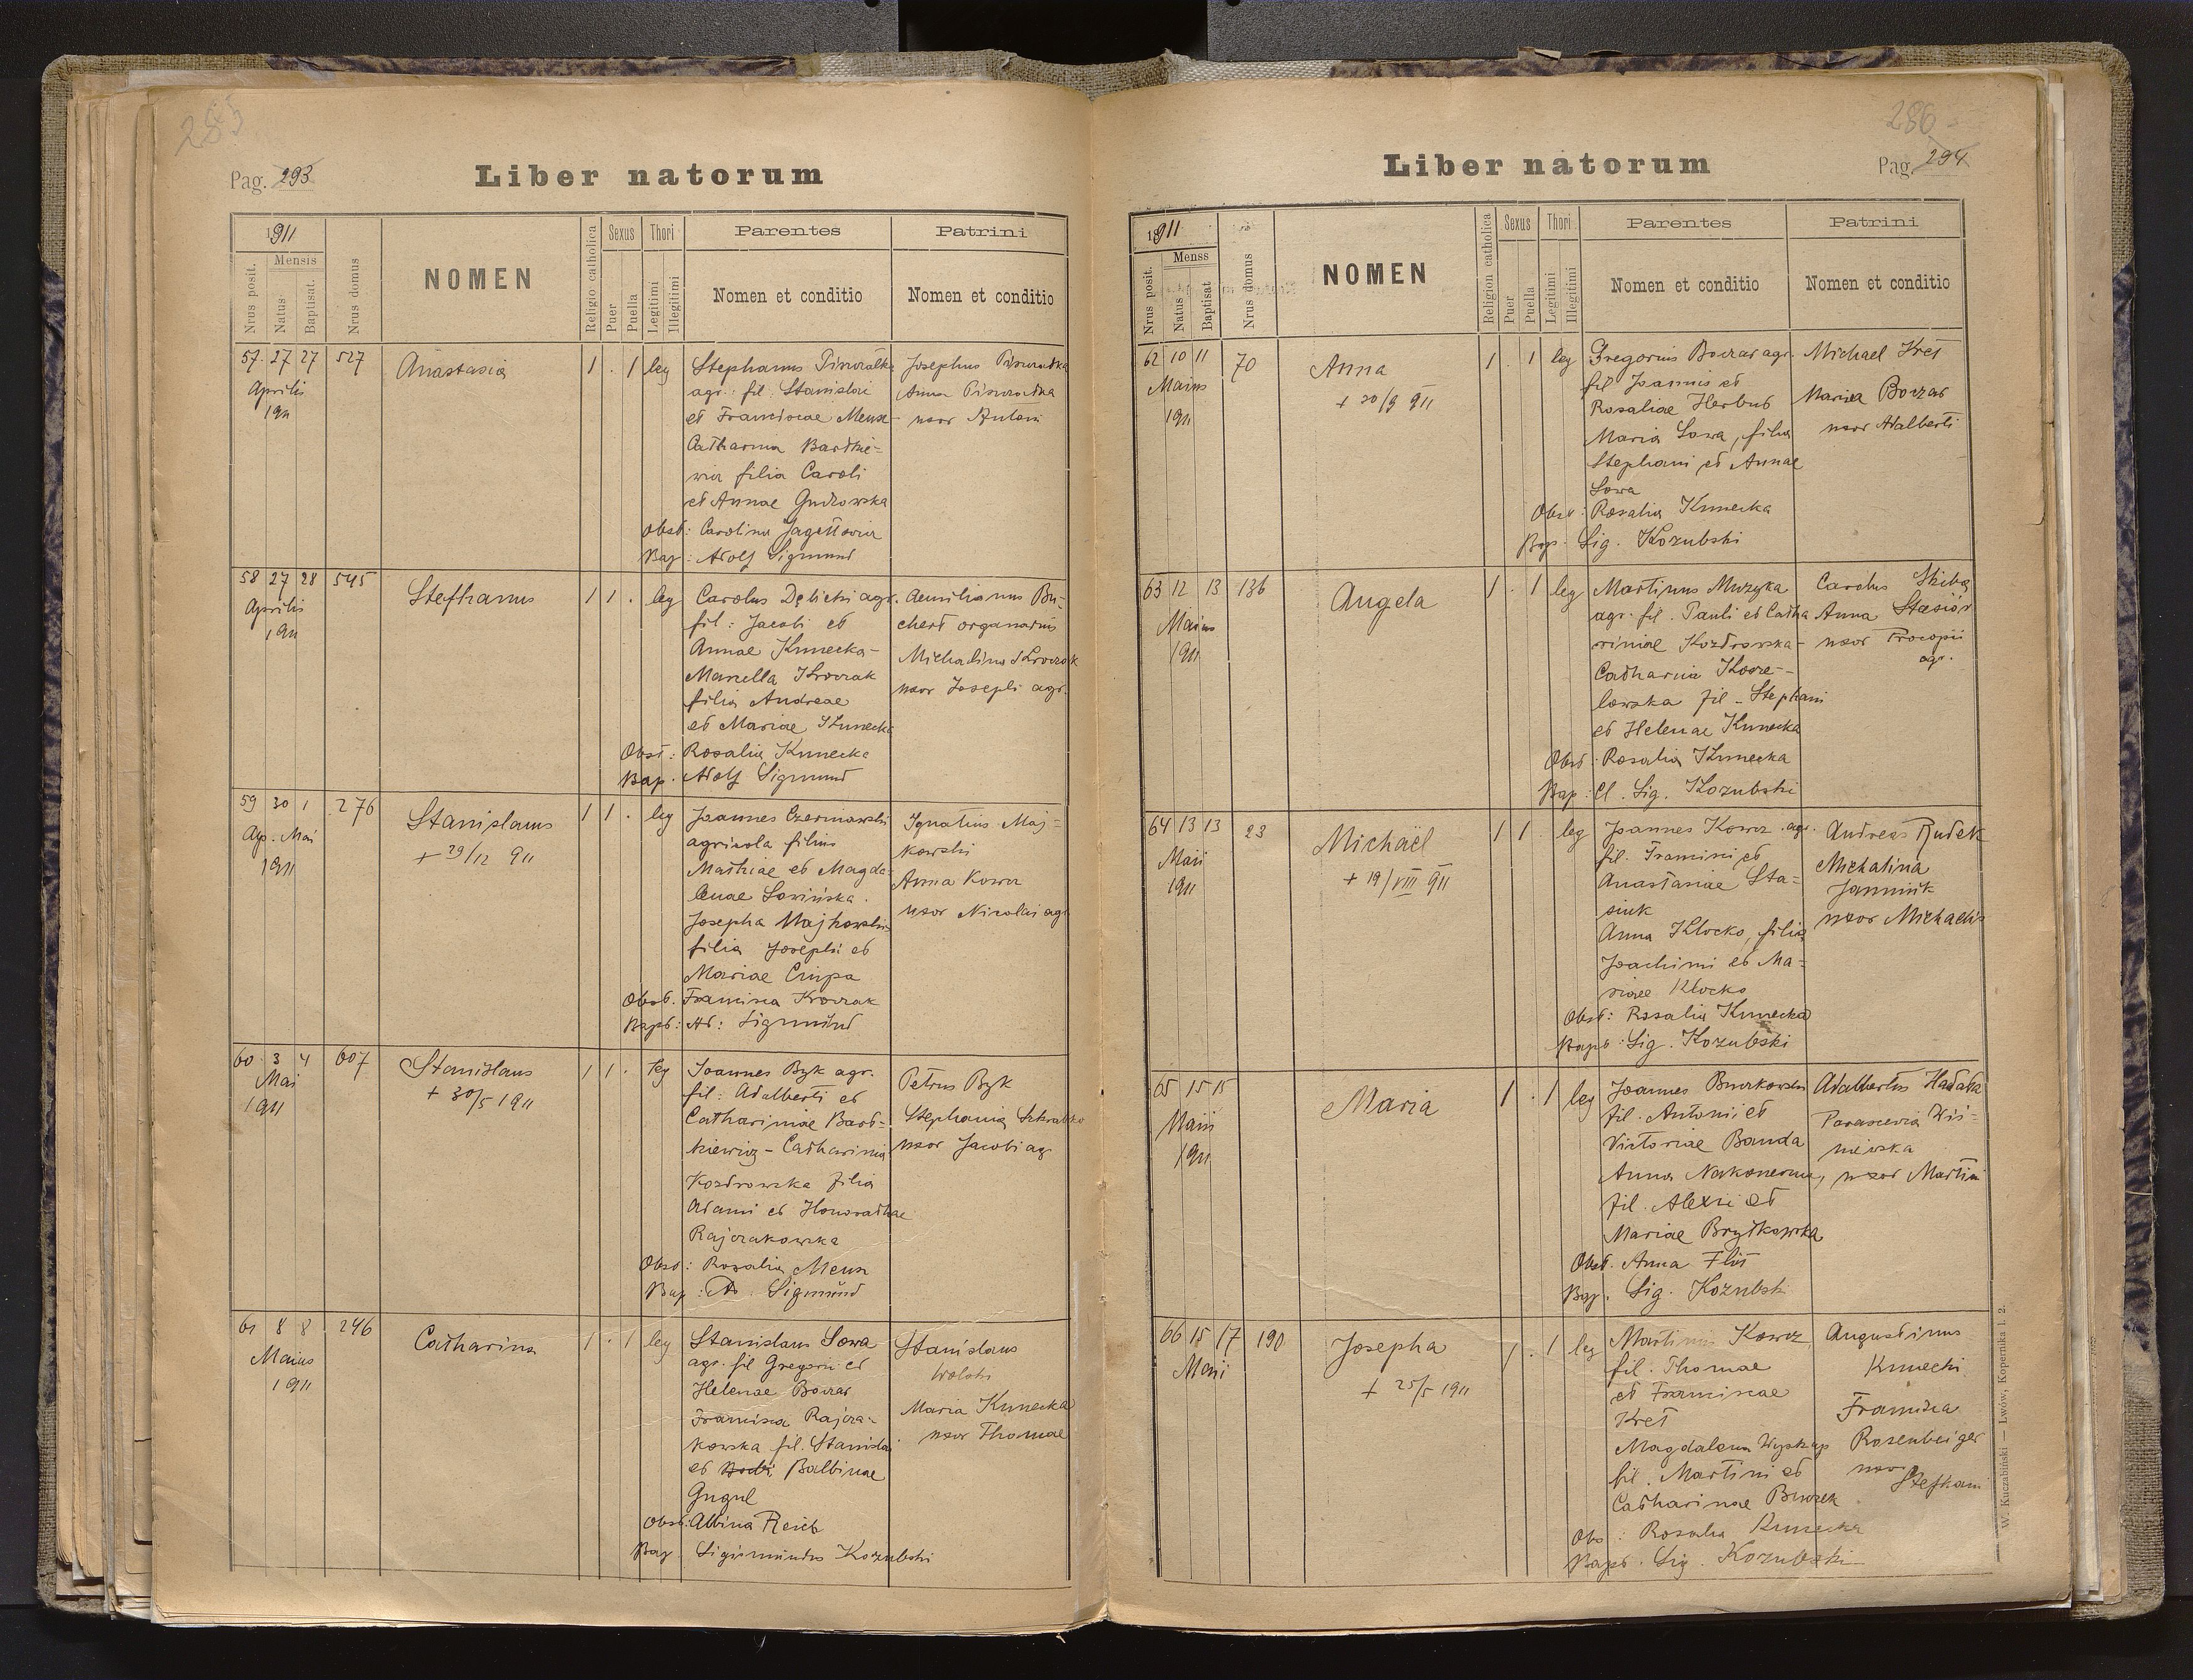 285
Pag. 293
Liber natorum
1911
Nrus posit.
Mensis
Natus
Baptisat.
Nrus domus
NOMEN
Religio catholica
Sexus
Puer
Puella
Thori
Legitimi
Illegitimi
Parentes
Nomen et conditio
Patrini
Nomen et conditio
57. 27 27 527
Aprilis
1911
Anastasia
1 . 1 leg
Stephanus
agr. fil. Stanislai
et Franciscae
Catharina Bartkie-
wicz filia Caroli
et Annae Gudrowska
Obst: Carolina
Bap: Adolf Sigmund
Josephus
Anna
uxor Antoni
58 27 28 545
Aprilis
1911
Stephanus
1 1 . leg
Carolus Dębicki agr.
fil: Jacobi et
Annae Kunecka-
Marcella Krowzak
filia Andreae
et Mariae Kunecka
Obst: Rosalia Kunecka
Bap. Adolf Sigmund
Aemilianus Bu-
chert organarius
Michalina Krowzak
uxor Josephi agr.
59 30 1 276
Ap. Mai
1911
Stanislaus
+ 29/12 911
1 1 . leg
Joannes Czerniawski
agricola filius
Mathiae et Magda-
lenae Sowińska.
Josepha Majkowska
filia Josephi et
Mariae Czupa
Obst. Francisca Krowzak
Bapt: Ad: Sigmund
Ignatius Maj-
kowski
Anna Kowcz
uxor Nicolai agr
60 3 4 607
Mai
1911
Stanislaus
+ 30/5 1911
1 1 . leg
Joannes Byk agr.
fil: Adalberti et
Catharinae Bart-
kiewicz - Catharina
Kozdrowska filia
Adami et Honorathae
Rajczakowska
Obst: Rosalia
Bap: A. Sigmund
Petrus Byk
Stephania
uxor Jacobi ag
61 8 8 246
Maius
1911
Catharina
1 . 1 leg
Stanislaus Sowa
agr. fil Gregorii et
Helenae Bowzar
Francisca Rajcza-
kowska fil. Stanislai
et Balbinae
Gugul
Obst: Albina Reich
Bap. Sigismundus Kozubski
Stanislaus
Wolski
Maria Kunecka
uxor Thomae
286
Liber natorum
Pag. 294
1911
Nrus posit.
Menss
Natus
Baptisat
Nrus domus
NOMEN
Religion catholica
Sexus
Puer
Puella
Thori
Legitimi
Illegitimi
Parentes
Nomen et conditio
Patrini
Nomen et conditio
62 10 11 70
Maius
1911
Anna
+ 20/9 911
1 . 1 leg
Gregorius Bowzar agr.
fil Joannis et
Rosaliae Herbut
Maria Sowa, filia
Stephani et Annae
Sowa
Obst: Rosalia Kunecka
Bap. Sig. Kozubski
Michael Kret
Maria Bowzar
uxor Adalberti
63 12 13 136
Maius
1911
Angela
1 . 1 leg
Martinus Muzyka
agr. fil. Pauli et Catha
rinae Kozdrowska-
Catharina Koze-
lowska fil - Stephani
et Helenae Kunecka
Obst: Rosalia Kunecka
Bap: Cl. Sig. Kozubski
Carolus Skiba
Anna Stasiów
uxor Procopii
agr.
64 13 13 23
Maii
1911
Michaël
+ 19/VIII 911
1 1 . leg
Joannes Kowcz agr.
fil. Francisci et
Anastasiae Sta-
siuk
Anna Klocko, filia
Joachimi et Ma-
riae Klocko
Obst: Rosalia Kunecka
Bapt: Sig. Kozubski
Andreas Rudek
Michalina
uxor Michaelis
65 15 15
Maii
1911
Maria
1 . 1 leg
Joannes
fil. Antonii et
Victoriae Banda
Anna Nakoneczna,
fil. Alexii et
Mariae Brytkowska
Obst. Anna Flis
Bap. Sig. Kozubsk
Adalbertus
Parascevia Wiś-
niewska
uxor Martini
66 15 17 190
Maii
Josepha
+ 25/5 1911
1 . 1 leg
Martinus Kowcz
fil. Thomae
et Franciscae
Kret
Magdalena Wyskup
fil. Martini et
Catharinae
Obs: Rosalia Kunecka
Bapt. Sig. Kozubski
Augustinus
Kunecki
Francisca
Rosenbeiger
uxor
Stephani
W. Kuczabiński — Lwów, Kopernika l. 2.